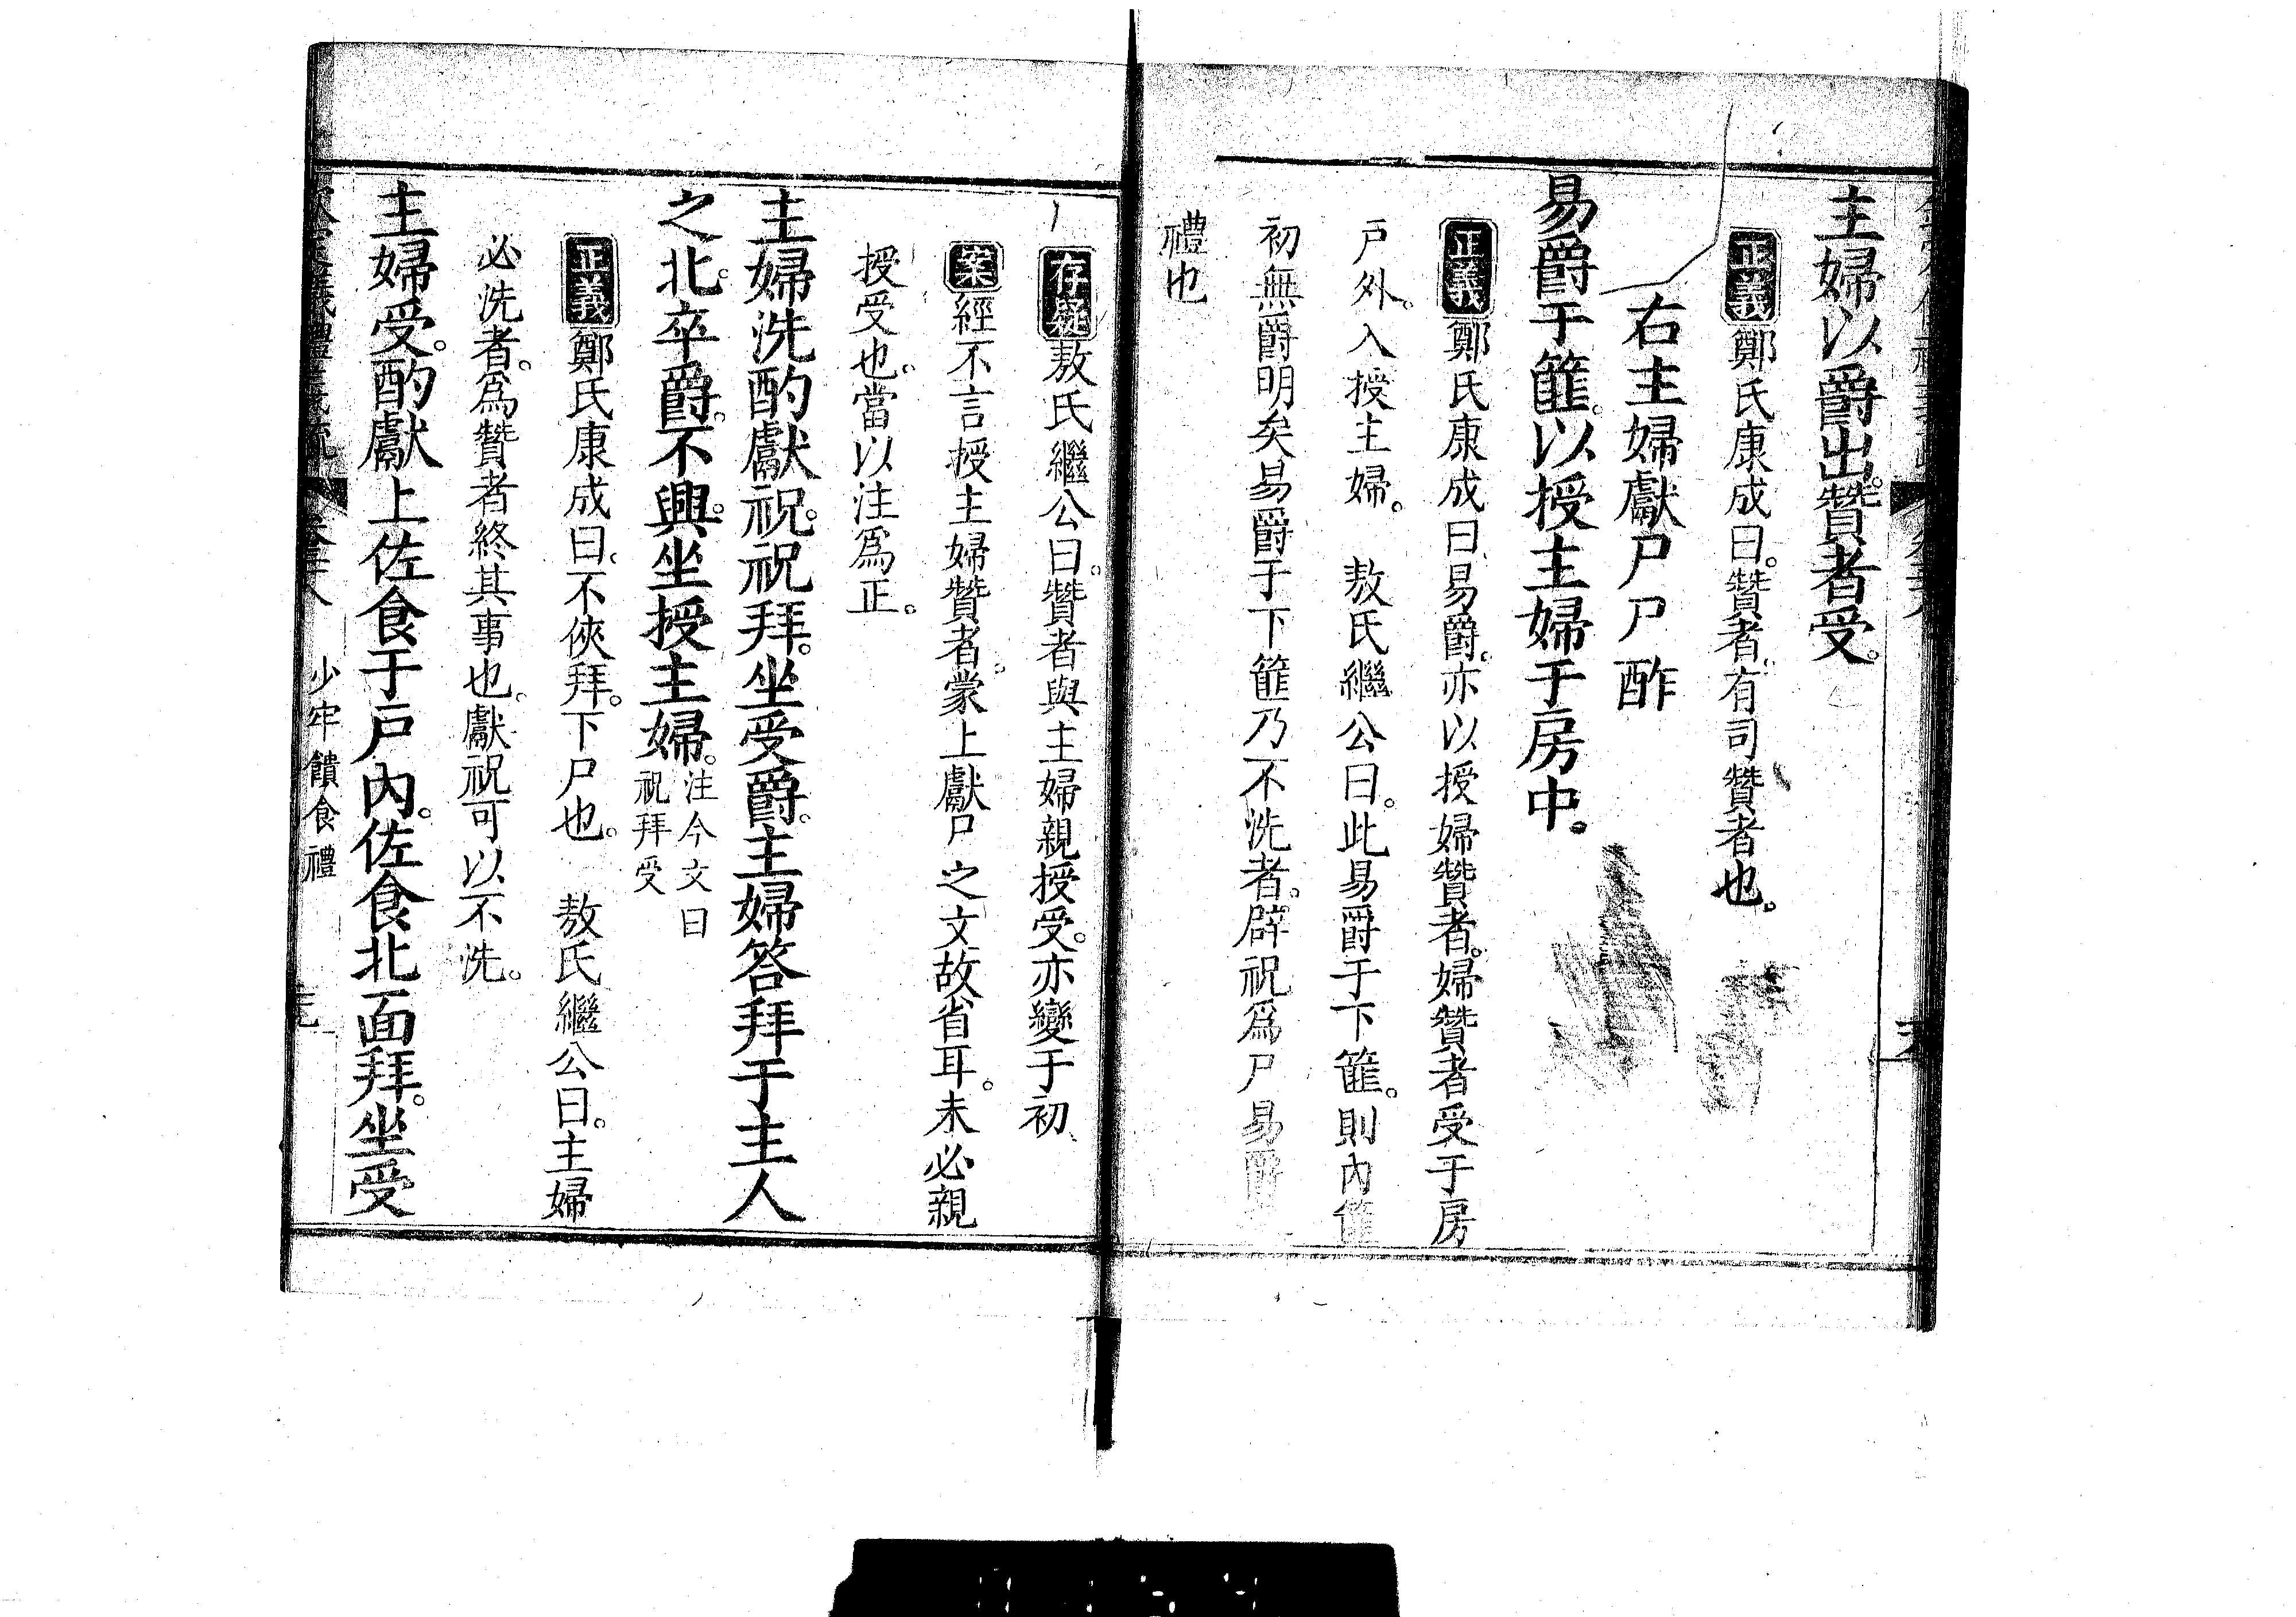 主婦以爵出。贊者受。
正義鄭氏康成曰。贊者。有司贊者也。
右主婦獻尸尸酢
易爵于篚。以授主婦于房中。
正義鄭氏康成曰。易爵。亦以授婦贊者。婦贊者受于房
戶外。入授主婦。　敖氏繼公曰。此易爵于下篚。則內篚
初無爵明矣易爵于下篚乃不洗者。辟祝爲尸易爵
禮也
存疑敖氏繼公曰。贊者與主婦親授受。亦變于初
案經不言授主婦贊者。蒙上獻尸之文故省耳。未必親
授受也。當以注爲正。
主婦洗酌獻祝。祝拜。坐受爵。主婦答拜于主人
之北。卒爵。不興。坐授主婦。注今文曰祝拜受
正義鄭氏康成曰。不俠拜。下尸也。　敖氏繼公曰。主婦
必洗者。爲贊者終其事也。獻祝可以不洗。
主婦受。酌獻上佐食于戶內。佐食北面拜。坐受
少牢饋食禮